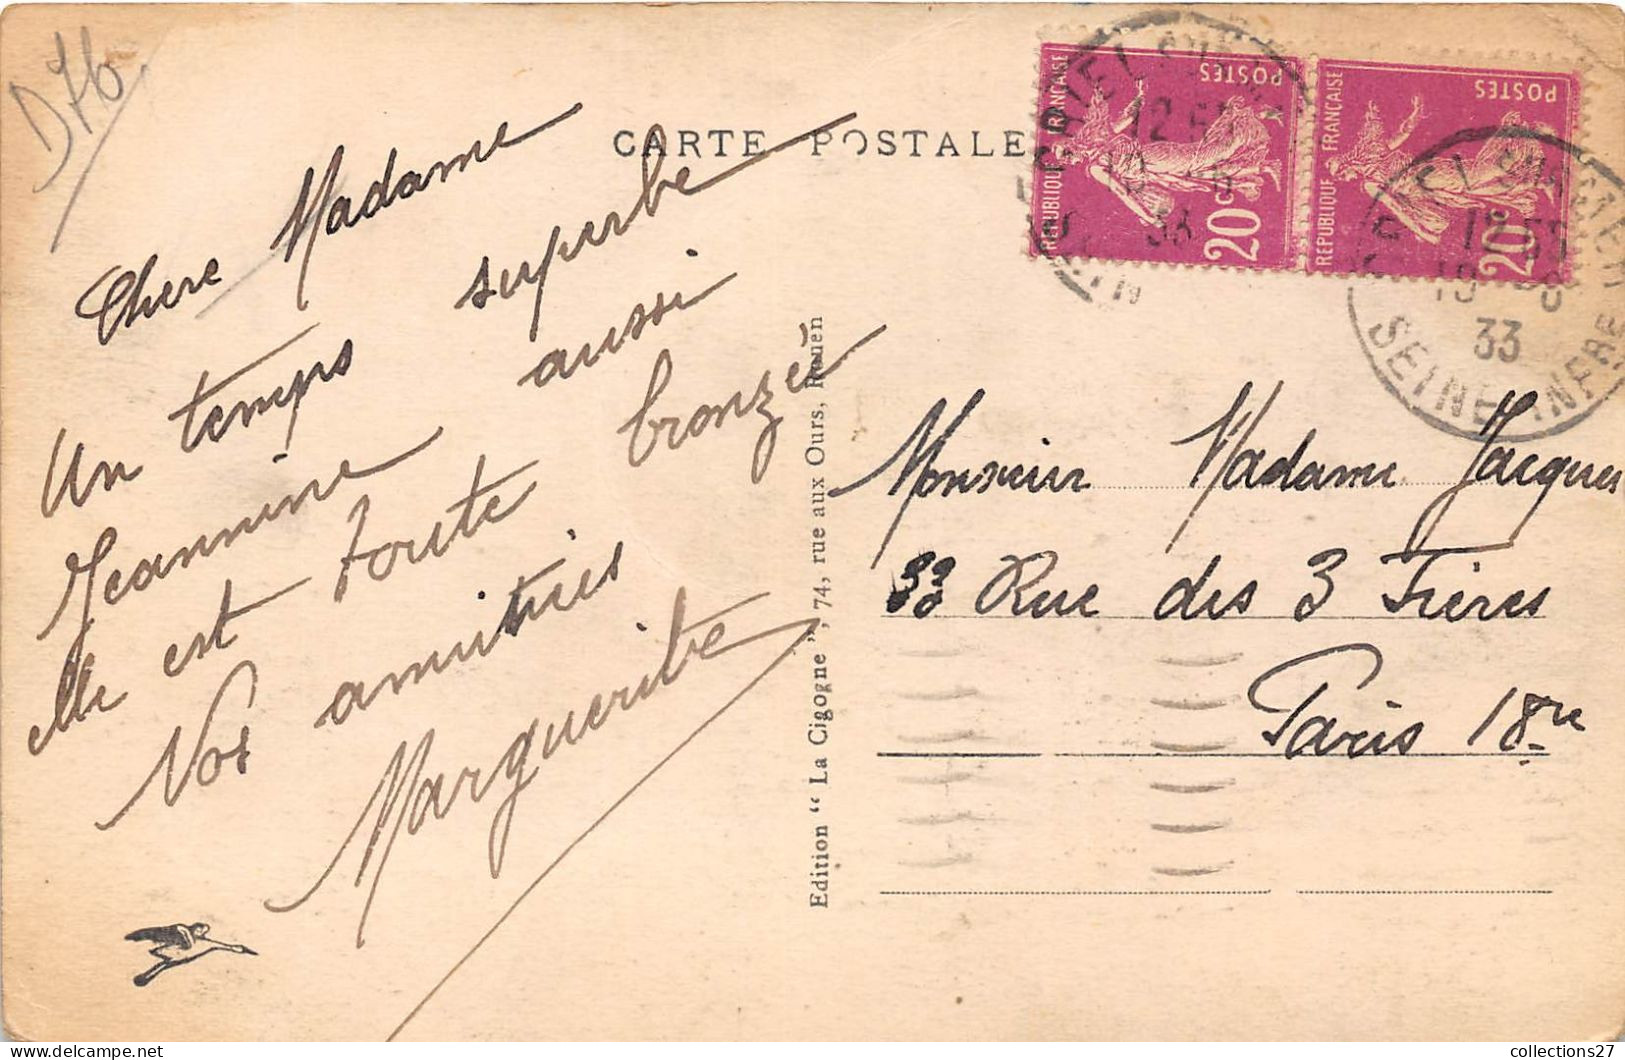 D76
CARTE POSTALE
Chere Madame
Un temps superbe
Jeannine aussi
elle est toute bronzée
Nos amitiés
Marguerite
Edition “ La Cigogne ”, 74, rue aux Ours, Rouen
REPUBLIQUE FRANÇAISE
POSTES
20c
REPUBLIQUE FRANÇAISE
POSTES
20c
CRIEL SUR MER
33
SEINE INFRE
Monsieur Madame Jacques
33 Rue des 3 Frères
Paris 18re
collections27